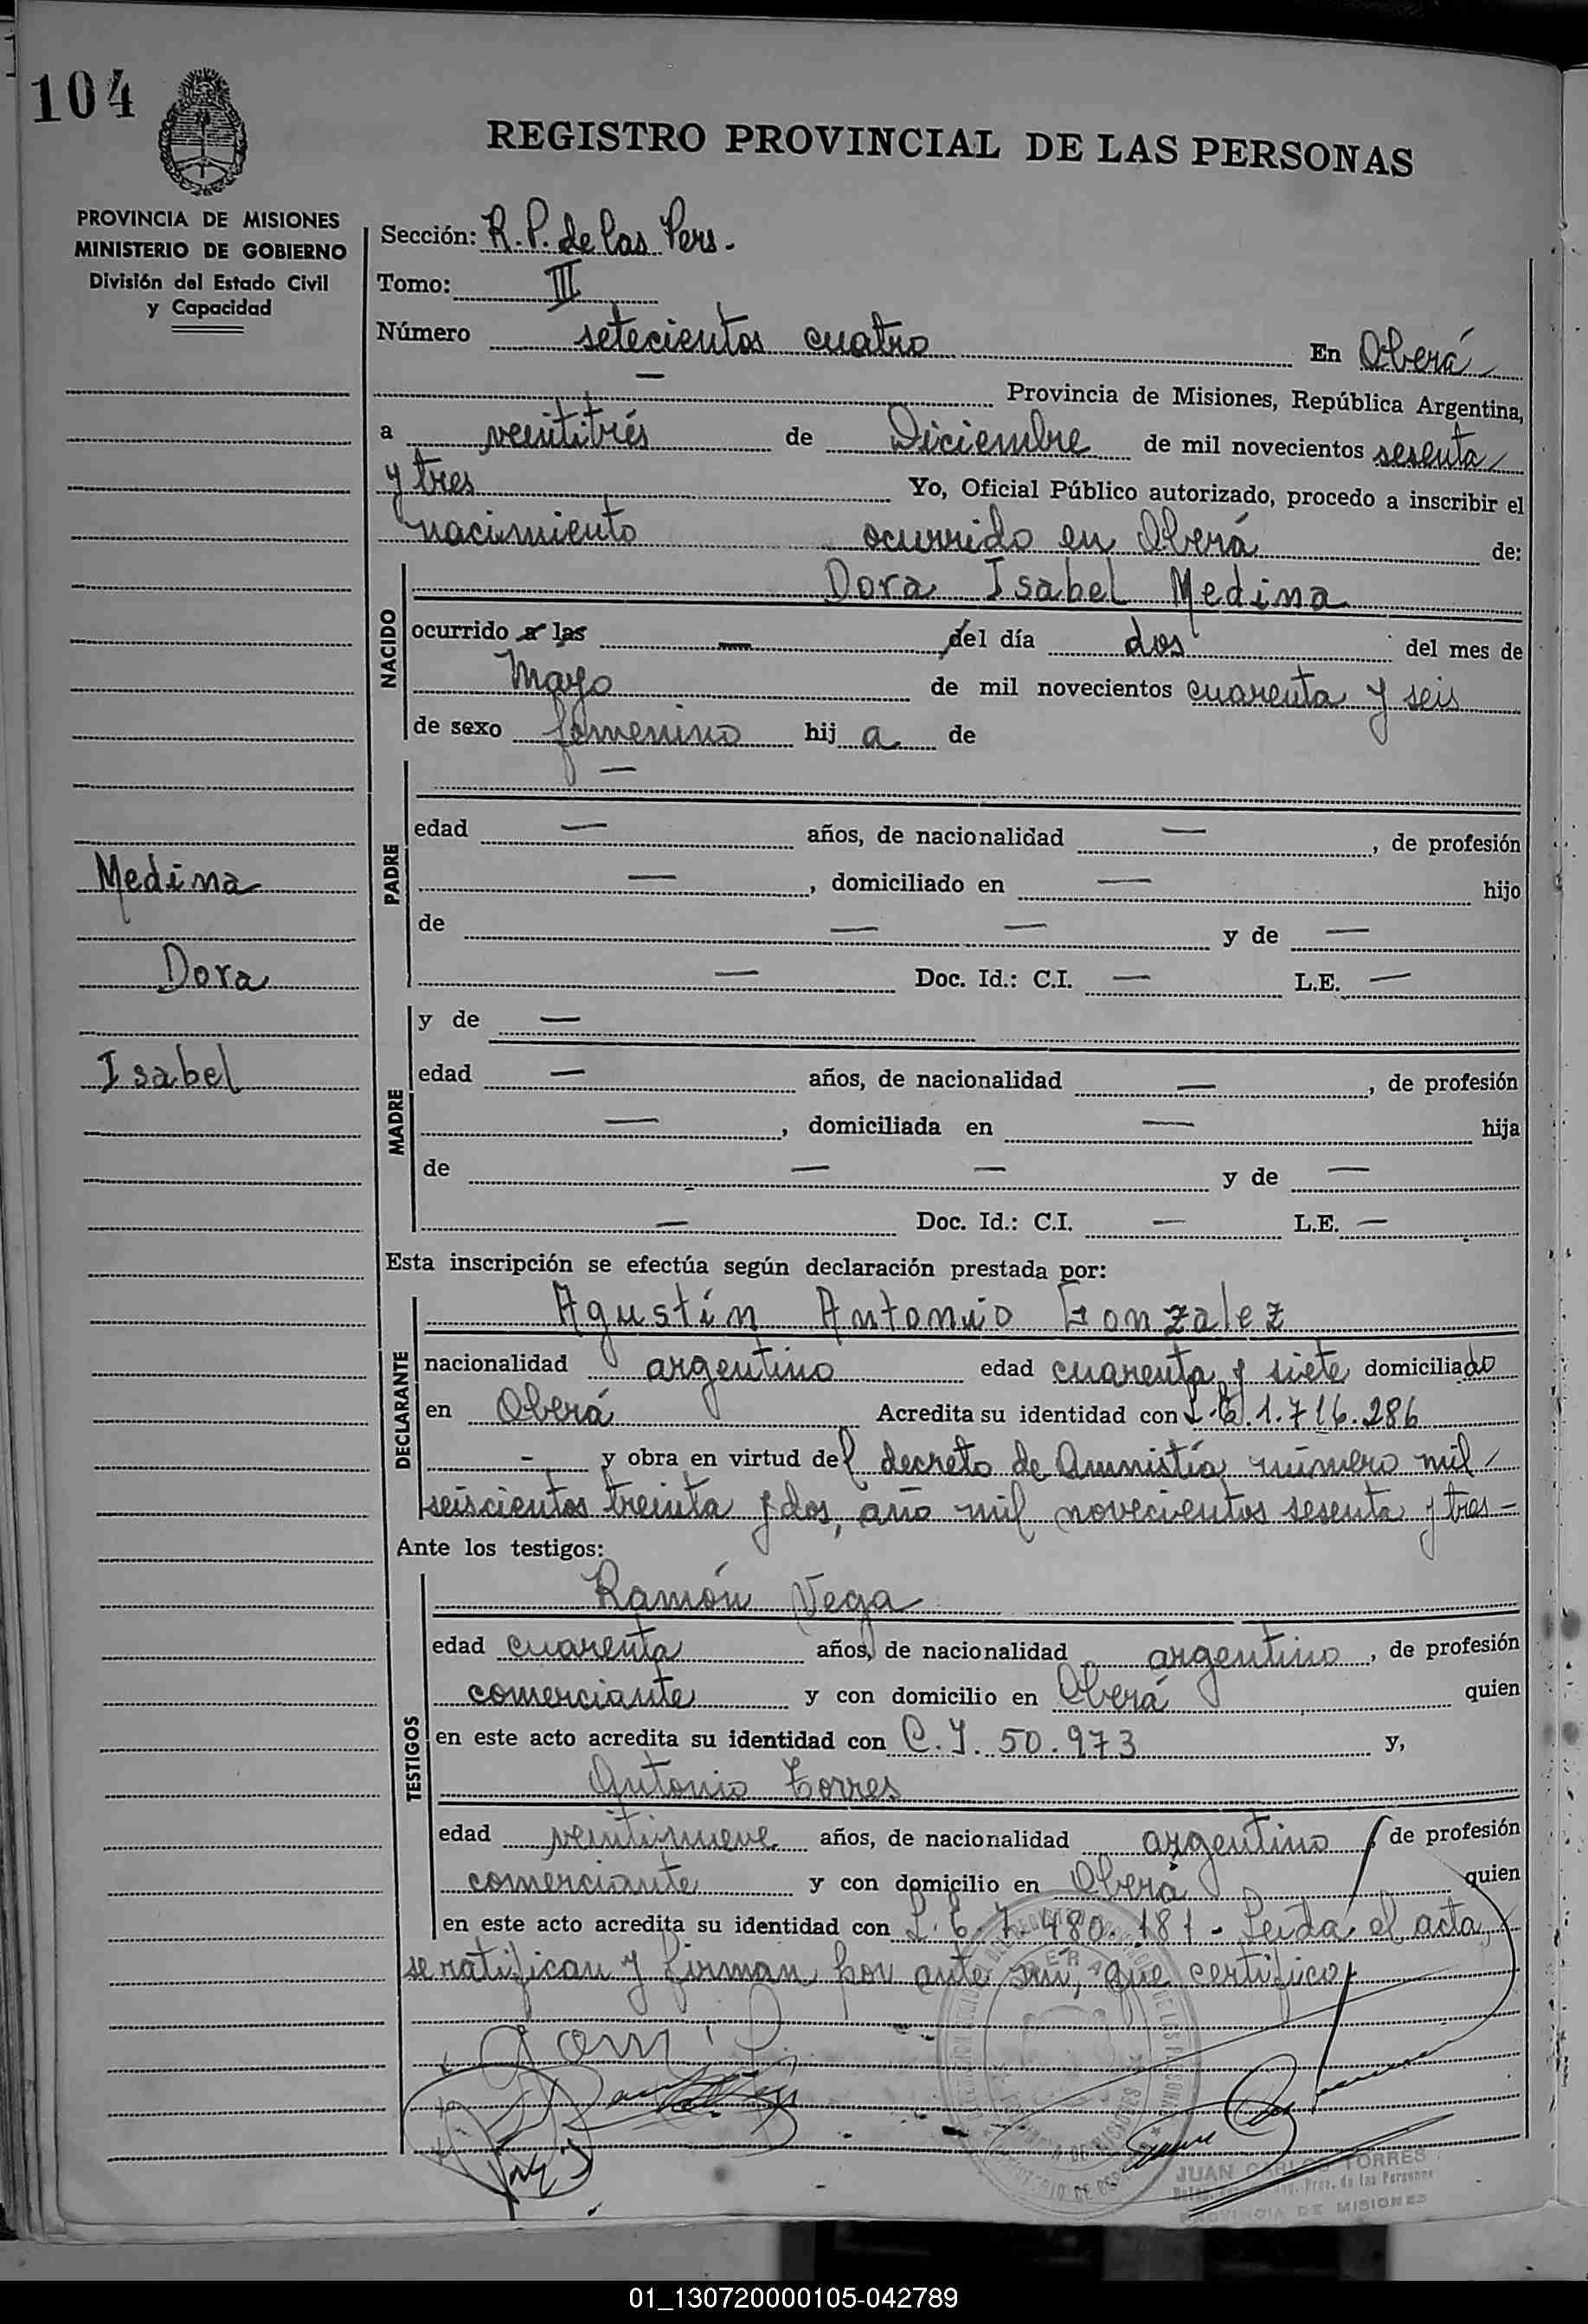 104
REGISTRO PROVINCIAL DE LAS PERSONAS
PROVINCIA DE MISIONES
MINISTERIO DE GOBIERNO
División del Estado Civil
y Capacidad
Sección: R.P. de las Pers.
Tomo: III
Número setecientos cuatro En Oberá
— Provincia de Misiones, República Argentina,
a veintitrés de Diciembre de mil novecientos sesenta
y tres Yo, Oficial Público autorizado, procedo a inscribir el
nacimiento ocurrido en Oberá de:
NACIDO
Dora Isabel Medina
ocurrido a las — del día dos del mes de
Mayo de mil novecientos cuarenta y seis
de sexo femenino hij a de
PADRE
—
edad — años, de nacionalidad — , de profesión
— , domiciliado en — hijo
de — — y de —
— Doc. Id.: C.I. — L.E. —
Medina
Dora
Isabel
MADRE
y de —
edad — años, de nacionalidad — , de profesión
— , domiciliada en — hija
de — — y de —
— Doc. Id.: C.I. — L.E. —
Esta inscripción se efectúa según declaración prestada por:
DECLARANTE
Agustín Antonio Gonzalez
nacionalidad argentino edad cuarenta y siete domiciliado
en Oberá Acredita su identidad con L.E. 1.716.286
- y obra en virtud del decreto de Amnistía número mil
seiscientos treinta y dos, año mil novecientos sesenta y tres —
Ante los testigos:
TESTIGOS
Ramón Vega
edad cuarenta años, de nacionalidad argentino , de profesión
comerciante y con domicilio en Oberá quien
en este acto acredita su identidad con C.I. 50.973 y,
Antonio Torres
edad veintinueve años, de nacionalidad argentino , de profesión
comerciante y con domicilio en Oberá quien
en este acto acredita su identidad con L.E. 7.480.181 - Leída el acta,
se ratifican y firman por ante mí, que certifico
JUAN CARLOS TORRES
Prov. de las Personas
PROVINCIA DE MISIONES
01_130720000105-042789